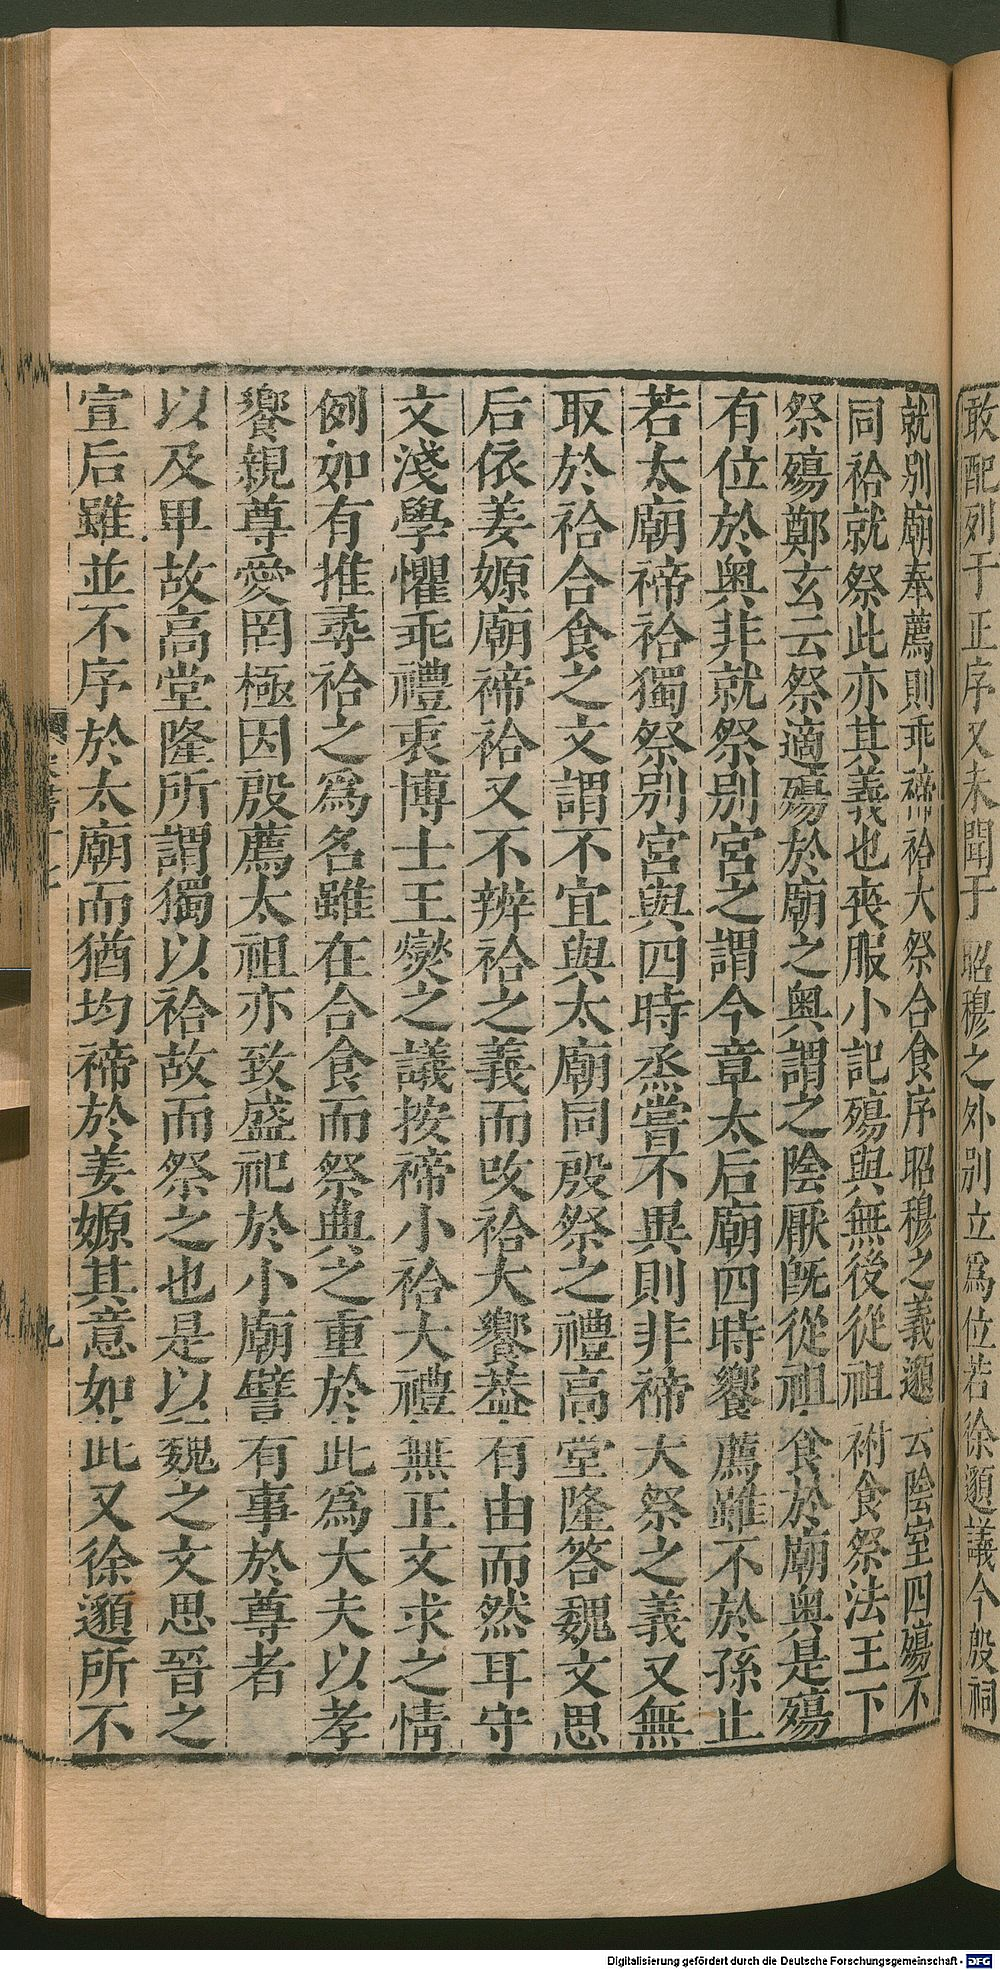 敢配列于正序又未聞于昭穆之外别立爲位若徐邈議今殷祠
就别廟奉薦則乖禘祫大祭合食序昭穆之義邈云陰室四殤不
同祫就祭此亦其義也喪服小記殤與無後從祖祔食祭法王下
祭殤鄭玄云祭適殤於廟之奥謂之陰厭旣從祖食於廟奥是殤
有位於奥非就祭别宮之謂今章太后廟四時饗薦雖不於孫止
若太廟禘祫獨祭别宮與四時烝嘗不異則非禘大祭之義又無
取於祫合食之文謂不宜與太廟同殷祭之禮高堂隆答魏文思
后依姜嫄廟禘祫又不辨祫之義而改祫大饗葢有由而然耳守
文淺學懼乖禮衷博士王燮之議按禘小祫大禮無正文求之情
例如有推尋祫之爲名雖在合食而祭典之重於此爲大夫以孝
饗親尊愛罔極因殷薦太祖亦致盛祀於小廟譬有事於尊者
以及甲故高堂隆所謂獨以祫故而祭之也是以魏之文思晉之
宣后雖並不序於太廟而猶均禘於姜嫄其意如此又徐邈所不
九
Digitalisierung gefördert durch die Deutsche Forschungsgemeinschaft - DFG